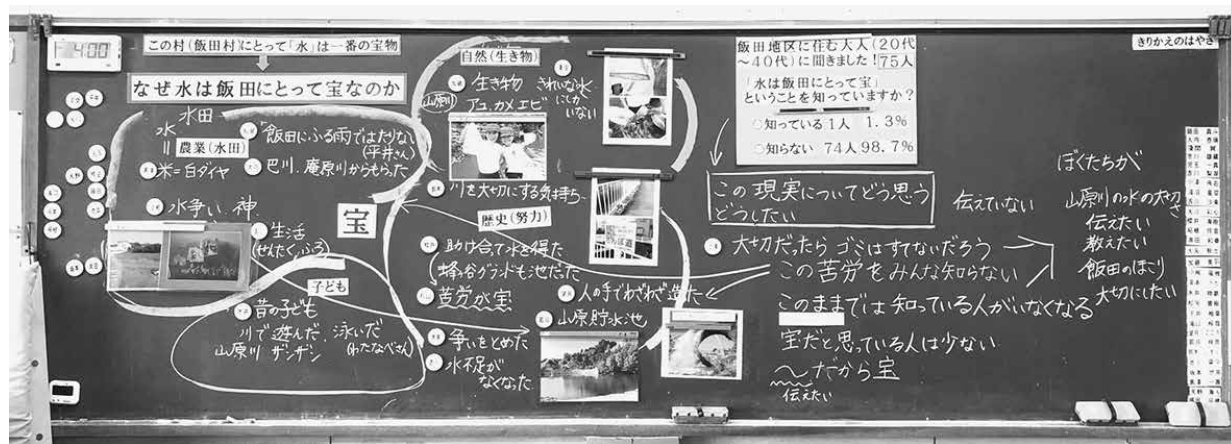 4:00
この村(飯田村)にとって「水」は一番の宝物
なぜ水は飯田にとって宝なのか
水田
水
=
農業(水田)
米=白ダイヤ
飯田にふる雨ではたりない
(平井さん)
巴川、庵原川からもらった
水争い 神
生活
(せんたく、ふろ)
宝
子ども
昔の子ども
川で遊んだ、泳いだ
山原川 ザンザン
(わたなべさん)
自然(生き物)
生き物
山原川
アユ、カメ、エビ
きれいな水
にしか
いない
川を大切にする気持ち
歴史(努力)
助け合って水を得た
蜂谷グランドも池だった
苦労が宝
争いをとめた
水不足が
なくなった
人の手でわざわざ造った
山原貯水池
飯田地区に住む大人(20代
~40代)に聞きました!75人
「水は飯田にとって宝」
ということを知っていますか?
○知っている 1人 1.3%
○知らない 74人 98.7%
この現実についてどう思う
どうしたい
大切だったらゴミはすてないだろう
この苦労をみんな知らない
このままでは知っている人がいなくなる
宝だと思っている人は少ない
~だから宝
伝えたい
伝えていない
ぼくたちが
山原川の水の大切さ
伝えたい
教えたい
飯田のほこり
大切にしたい
きりかえのはやさ